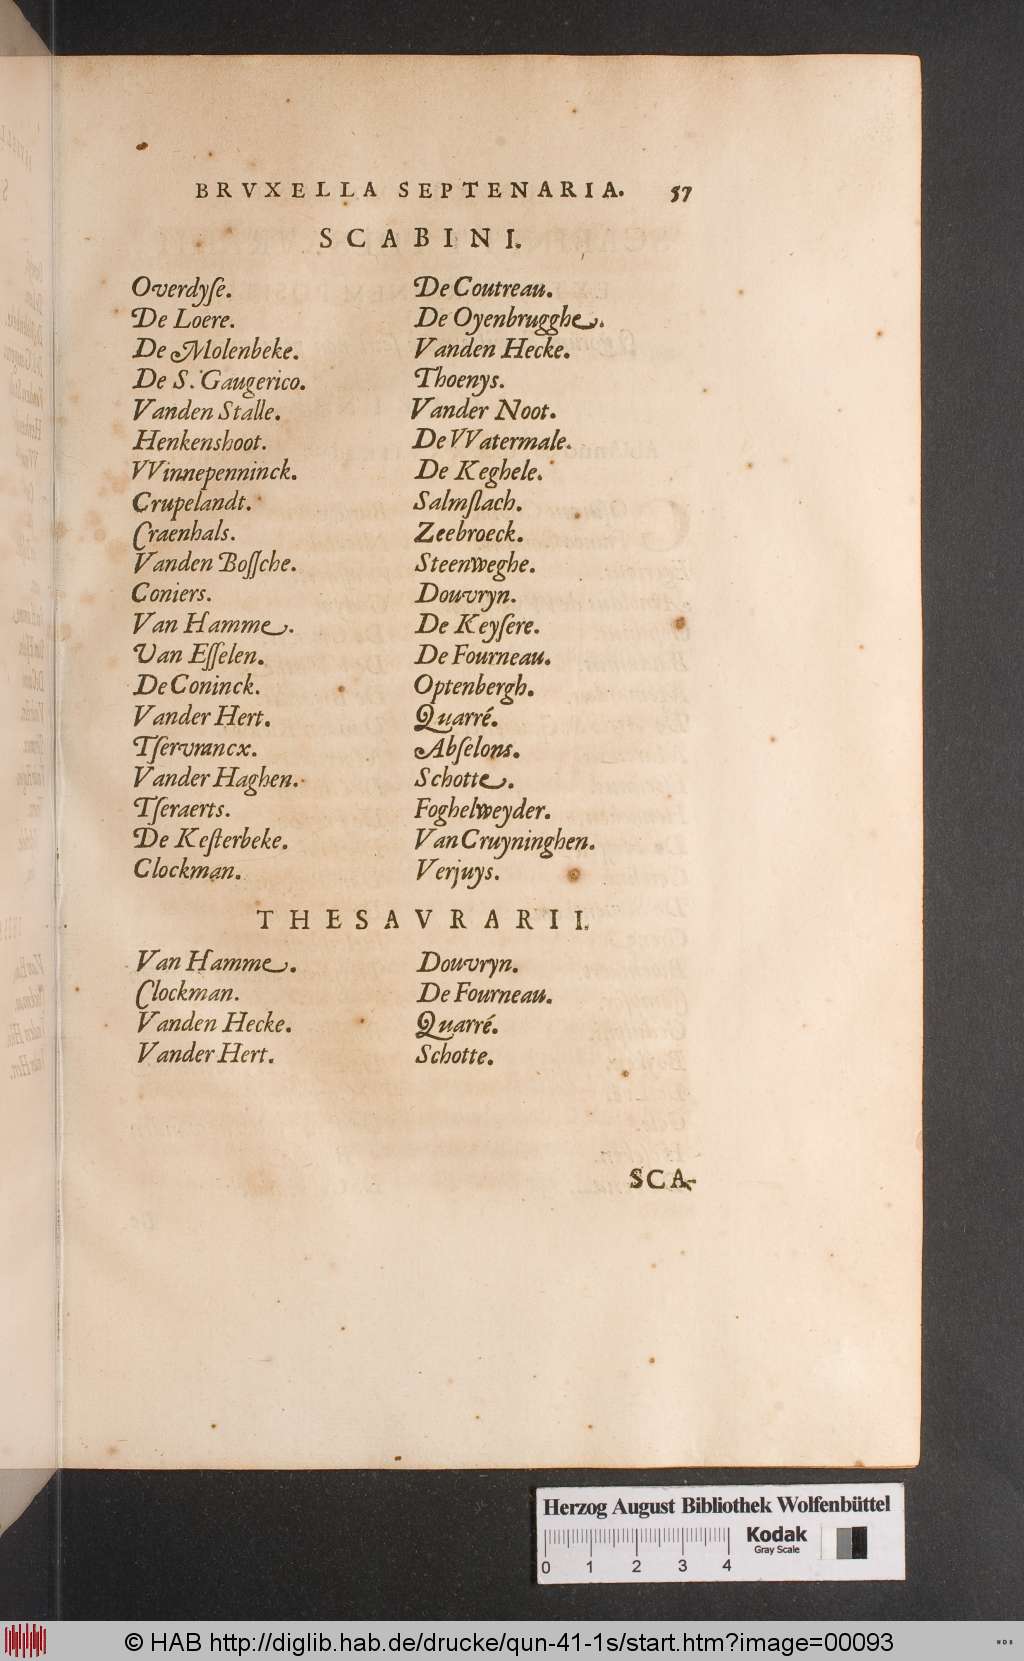 BRVXELLA SEPTENARIA. 57
SCABINI.
Overdyſe.
De Loere.
De Molenbeke.
De S. Gaugerico.
Vanden Stalle.
Henkenshoot.
VVinnepenninck.
Crupelandt.
Craenhals.
Vanden Boſſche.
Coniers.
Van Hamme.
Van Eſſelen.
De Coninck.
Vander Hert.
Tſervrancx.
Vander Haghen.
Tſeraerts.
De Keſterbeke.
Clockman.
De Coutreau.
De Oyenbrugghe.
Vanden Hecke.
Thoenys.
Vander Noot.
De VVatermale.
De Keghele.
Salmſlach.
Zeebroeck.
Steenweghe.
Douvryn.
De Keyſere.
De Fourneau.
Optenbergh.
Quarré.
Abſelons.
Schotte.
Foghelweyder.
Van Cruyninghen.
Verjuys.
THESAVRARII.
Van Hamme.
Clockman.
Vanden Hecke.
Vander Hert.
Douvryn.
De Fourneau.
Quarré.
Schotte.
SCA-
Herzog August Bibliothek Wolfenbüttel
Kodak
Gray Scale
0 1 2 3 4
© HAB http://diglib.hab.de/drucke/qun-41-1s/start.htm?image=00093